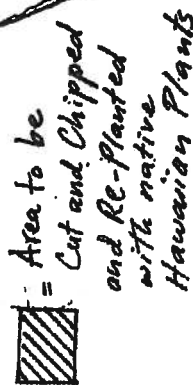 = Area to be
Cut and Chipped
and Re-Planted
with native
Hawaiian Plants